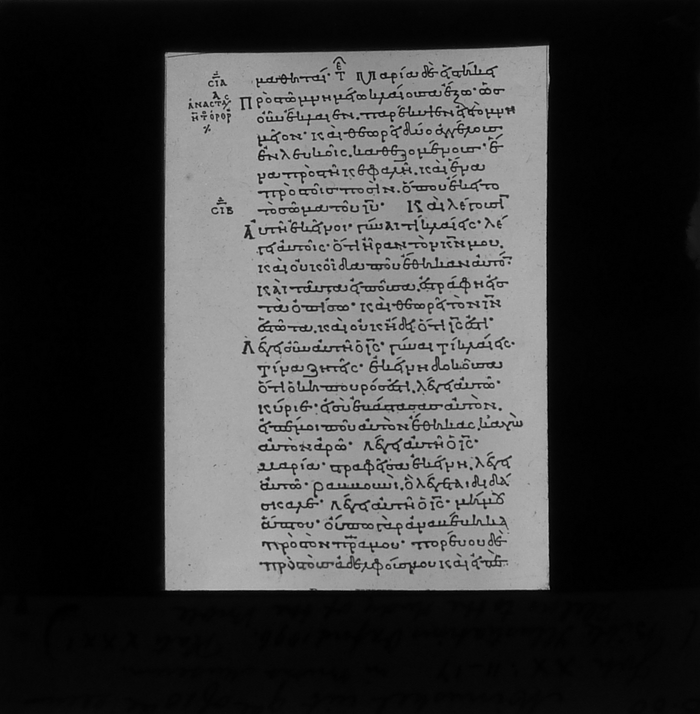 σια
μαθηταί· Τ Μαρία δὲ εἱστήκει
Πρὸς τῶ μνημείω κλαίουσα ἔξω· ὡς
οὖν ἔκλαιεν. παρέκυψεν εἰς τὸ μνη
μεῖον· καὶ θεωρεῖ δύο ἀγγέλους
ἐν λευκοῖς. καθεζομένους· ἕ
να πρὸς τῆ κεφαλῆ. καὶ ἕνα
πρὸς τοῖς ποσὶν. ὅπου ἔκειτο
σιβ
τὸ σῶμα τοῦ ιυ̅· Καὶ λέγουσιν
Αὐτῆ ἐκεῖνοι· γύναι τί κλαίεις· λέ
γει αὐτοῖς· ὅτι ἦραν τὸν κν̅ μου.
καὶ οὐκ οἶδα ποῦ ἔθηκαν αὐτόν·
καὶ ταῦτα εἰποῦσα. ἐστράφη εἰς
τὰ ὀπίσω· καὶ θεωρεῖ τὸν ιν̅
ἑστῶτα. καὶ οὐκ ἤδει ὅτι ις̅ ἐστί·
Λέγει οὖν αὐτῆ ὁ ις̅· γύναι τί κλαίεις·
τίνα ζητεῖς· ἐκείνη δοκοῦσα
ὅτι ὁ κηπουρός ἐστι. λέγει αὐτῶ·
κύριε· εἰ σὺ ἐβάστασας αὐτὸν.
εἰπέ μοι ποῦ αὐτὸν ἔθηκας. κἀγὼ
αὐτὸν ἀρῶ· λέγει αὐτῆ ὁ ις̅·
μαρία· στραφεῖσα ἐκείνη. λέγει
αὐτῶ· ραββουνι. ὃ λέγεται διδά
σκαλε· λέγει αὐτῆ ὁ ις̅· μή μου
ἅπτου· οὔπω γὰρ ἀναβέβηκα
πρὸς τὸν πρ̅α μου· πορεύου δὲ
πρὸς τοὺς ἀδελφούς μου καὶ εἰπὲ